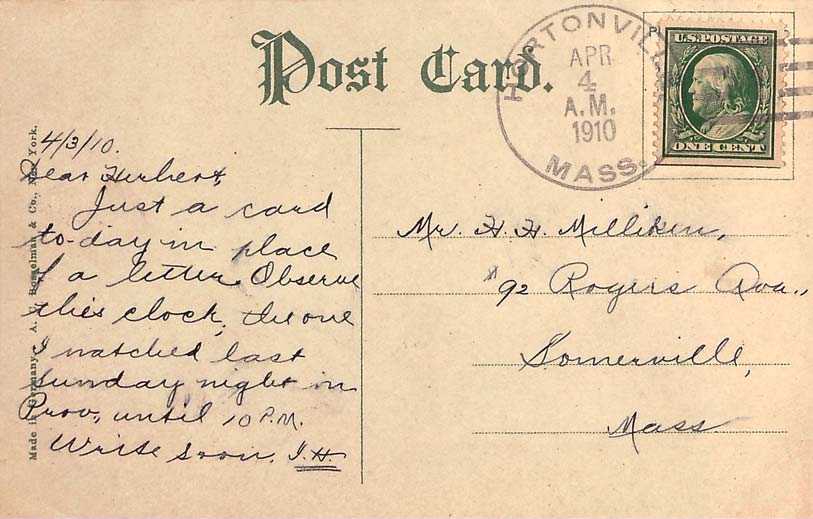 Post Card.
HORTONVILLE
APR
4
A.M.
1910
MASS.
U.S. POSTAGE
ONE CENT
4/3/10.
Dear Herbert,
Just a card
to-day in place
of a letter. Observe
this clock, the one
I watched last
Sunday night in
Prov., until 10 P.M.
Write soon. I.H.
Mr. H. H. Milliken,
92 Rogers Ave.,
Somerville,
Mass
Made in Germany. A. C. Bosselman & Co., New York.